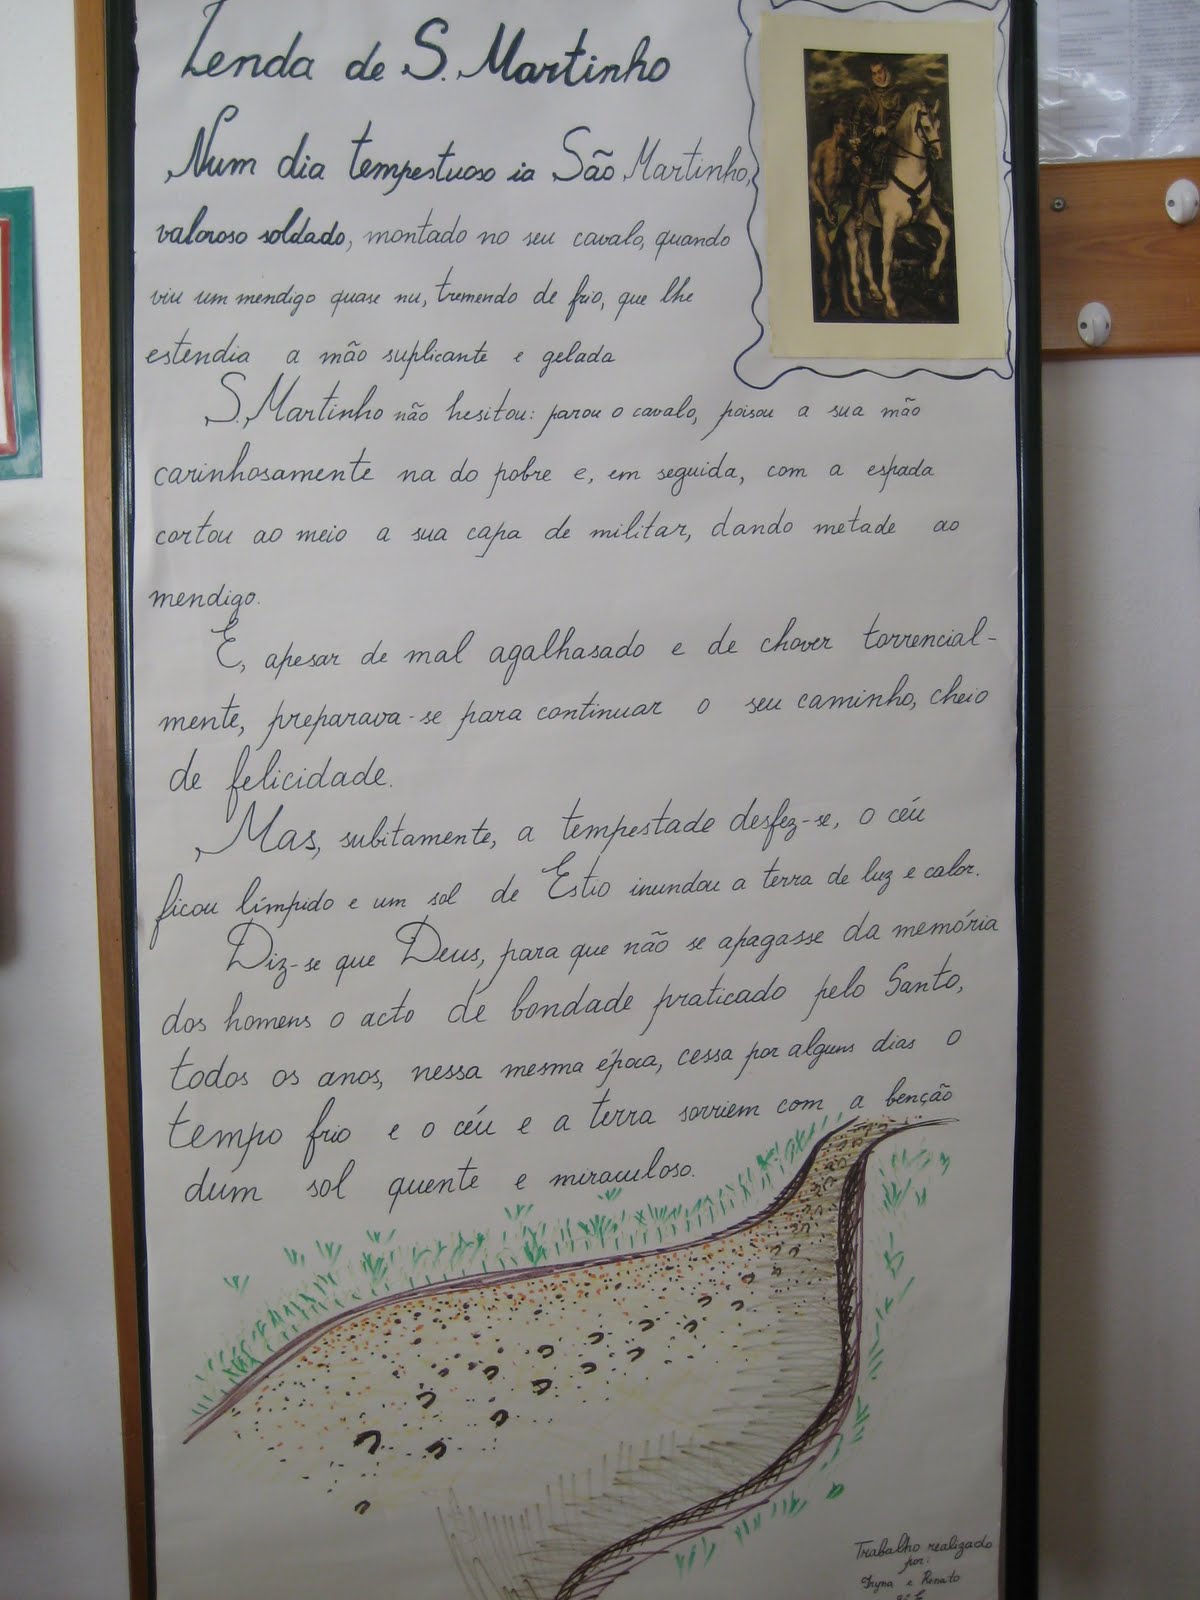 Lenda de S. Martinho
Num dia tempestuoso ia São Martinho,
valoroso soldado, montado no seu cavalo, quando
viu um mendigo quase nu, tremendo de frio, que lhe
estendia a mão suplicante e gelada
S. Martinho não hesitou: parou o cavalo, poisou a sua mão
carinhosamente na do pobre e, em seguida, com a espada
cortou ao meio a sua capa de militar, dando metade ao
mendigo.
E, apesar de mal agalhasado e de chover torrencial-
mente, preparava-se para continuar o seu caminho, cheio
de felicidade.
Mas, subitamente, a tempestade desfez-se, o céu
ficou límpido e um sol de Estio inundou a terra de luz e calor.
Diz-se que Deus, para que não se apagasse da memória
dos homens o acto de bondade praticado pelo Santo,
todos os anos, nessa mesma época, cessa por alguns dias o
tempo frio e o céu e a terra sorriem com a benção
dum sol quente e miraculoso.
Trabalho realizado
por:
Iryna e Renato